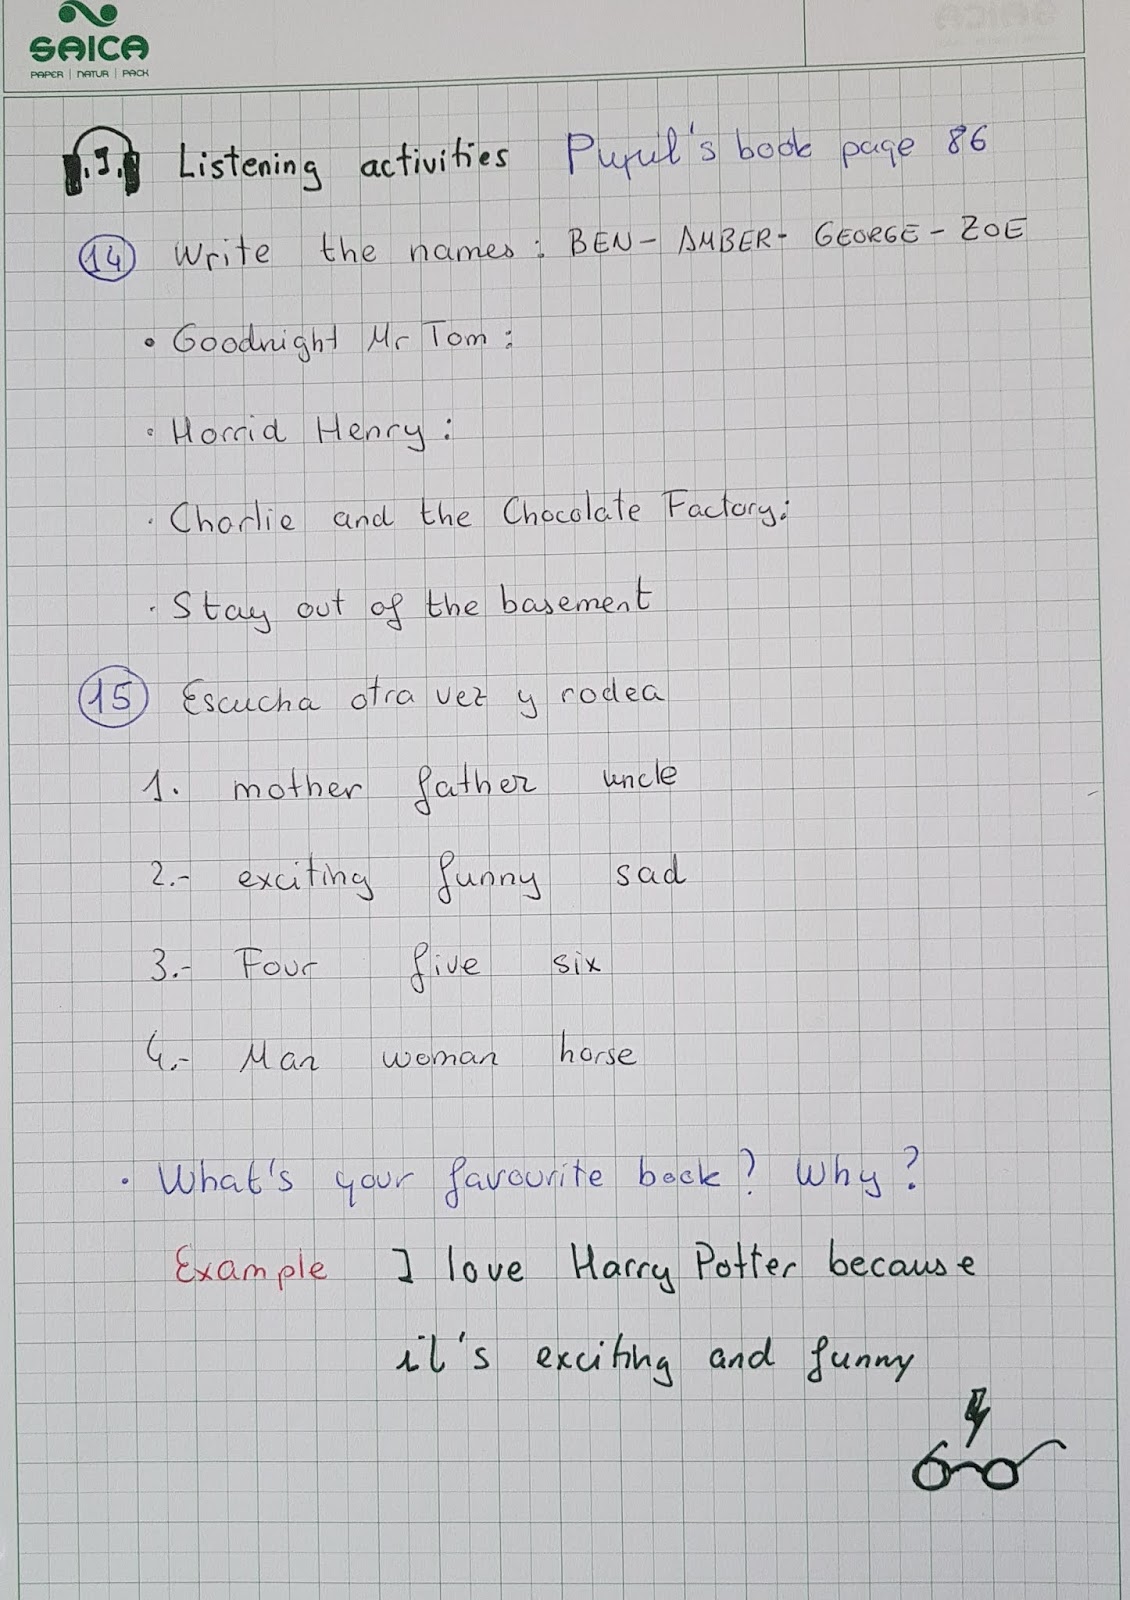 SAICA
PAPER | NATUR | PACK
Listening activities Pupil's book page 86
14 Write the names: BEN - AMBER - GEORGE - ZOE
• Goodnight Mr Tom:
• Horrid Henry:
• Charlie and the Chocolate Factory:
• Stay out of the basement
15 Escucha otra vez y rodea
1. mother father uncle
2.- exciting funny sad
3.- Four five six
4.- Man woman horse
• What's your favourite book? Why?
Example I love Harry Potter because
it's exciting and funny